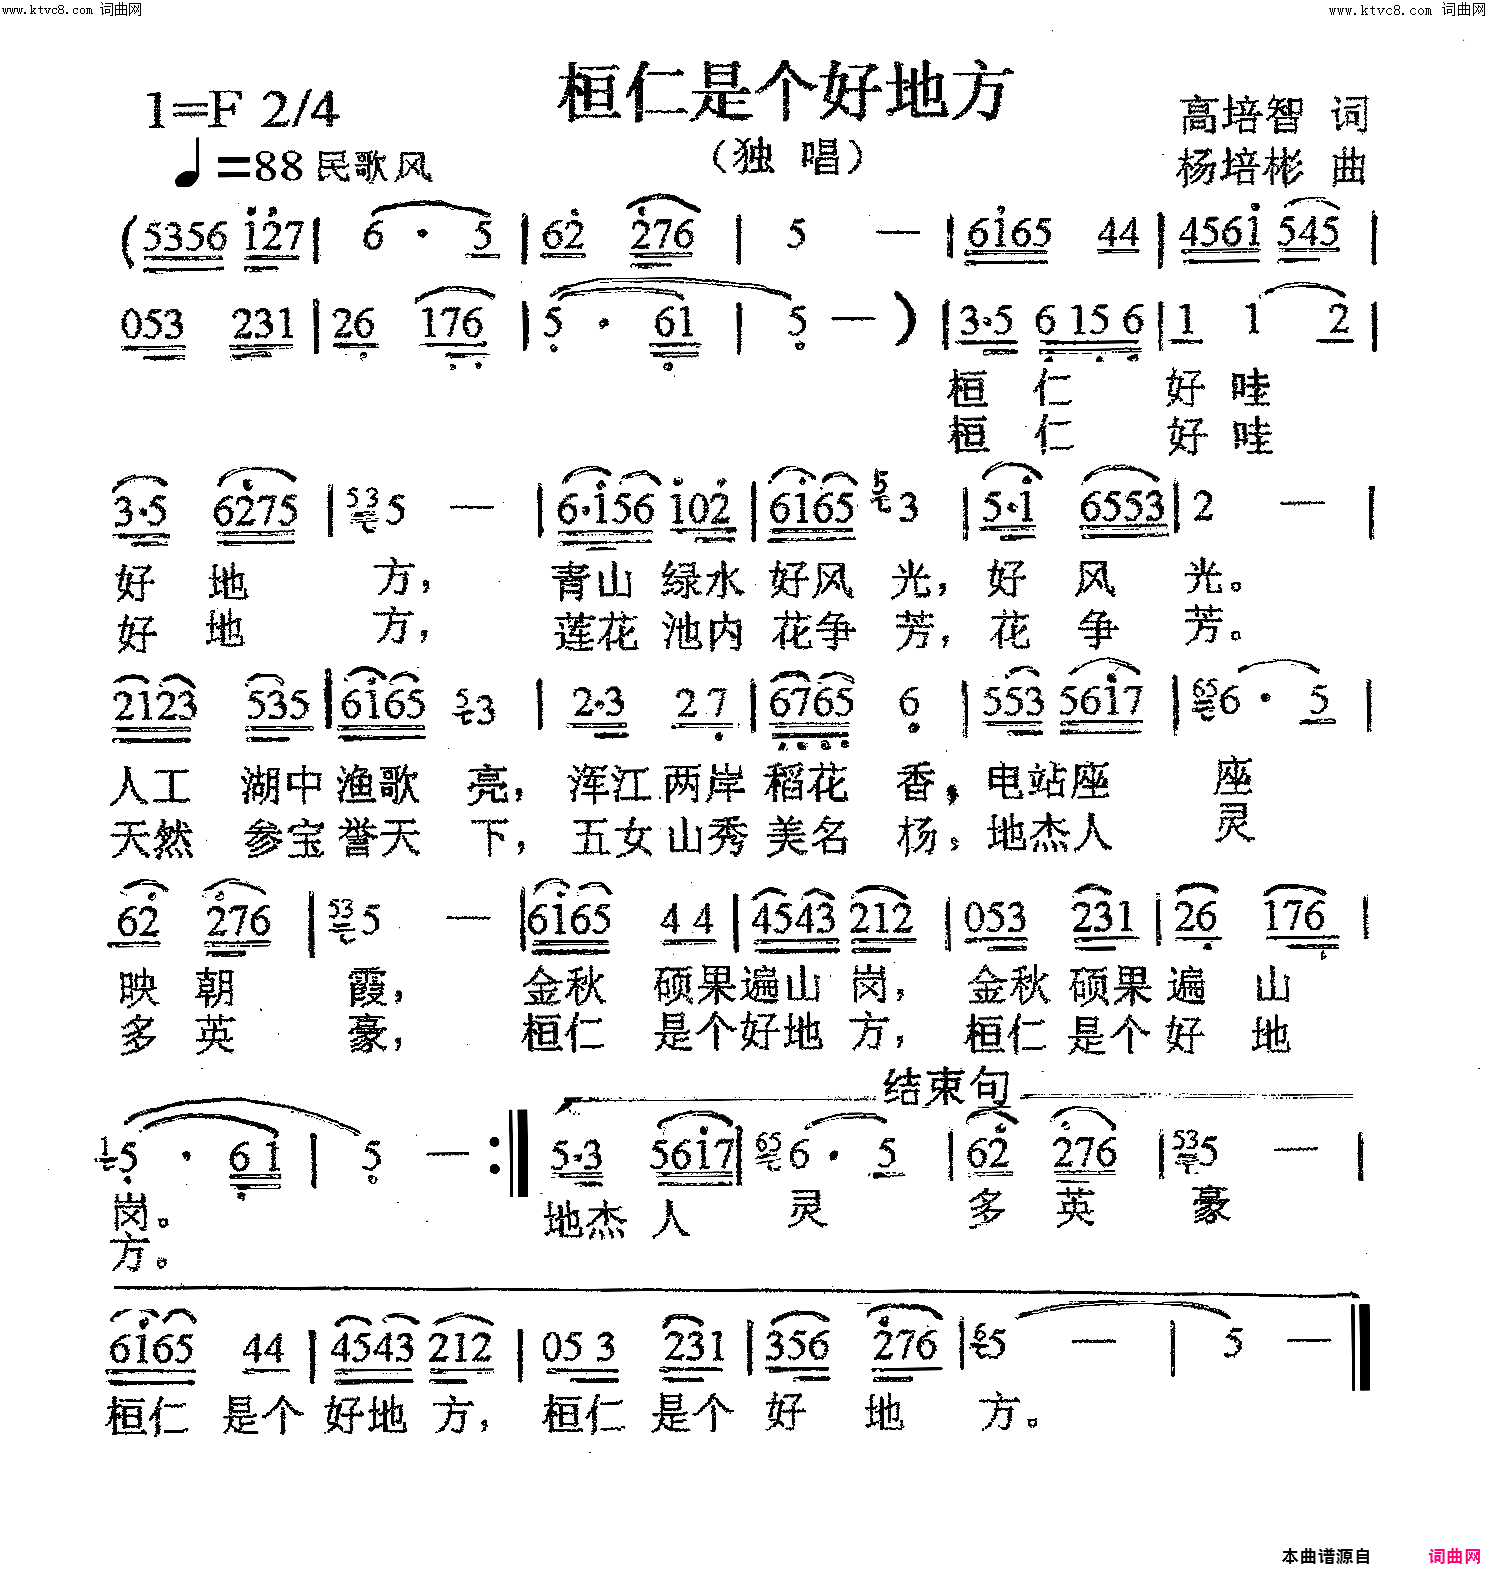 www.ktvc8.com 词曲网
www.ktvc8.com 词曲网
桓仁是个好地方
1=F 2/4
高培智 词
(独 唱)
♩=88 民歌风
杨培彬 曲
(5356 127 | 6 · 5 | 62 276 | 5 — | 6165 44 | 4561 545 |
053 231 | 26 176 | 5 · 61 | 5 — ) | 3·5 6 15 6 | 1 1 2 |
桓 仁 好 哇
桓 仁 好 哇
3·5 6275 | 53 5 — | 6·156 102 | 6165 5 3 | 5·1 6553 | 2 — |
好 地 方, 青山 绿水 好风 光, 好 风 光。
好 地 方, 莲花 池内 花争 芳, 花 争 芳。
2123 535 | 6165 5 3 | 2·3 2 7 | 6765 6 | 553 5617 | 65 6 · 5 |
人工 湖中 渔歌 亮, 浑江 两岸 稻花 香, 电站座 座
天然 参宝 誉天 下, 五女 山秀 美名 杨, 地杰人 灵
62 276 | 53 5 — | 6165 4 4 | 4543 212 | 053 231 | 26 176 |
映 朝 霞, 金秋 硕果遍山 岗, 金秋 硕果 遍 山
多 英 豪, 桓仁 是个好地 方, 桓仁 是个 好 地
结束句
1 5 · 61 | 5 — :| 5·3 5617 | 65 6 · 5 | 62 276 | 53 5 — |
岗。 地杰 人 灵 多 英 豪
方。
6165 44 | 4543 212 | 05 3 231 | 356 276 | 6 5 — | 5 — |
桓仁 是个 好地 方, 桓仁 是个 好 地 方。
本曲谱源自 词曲网